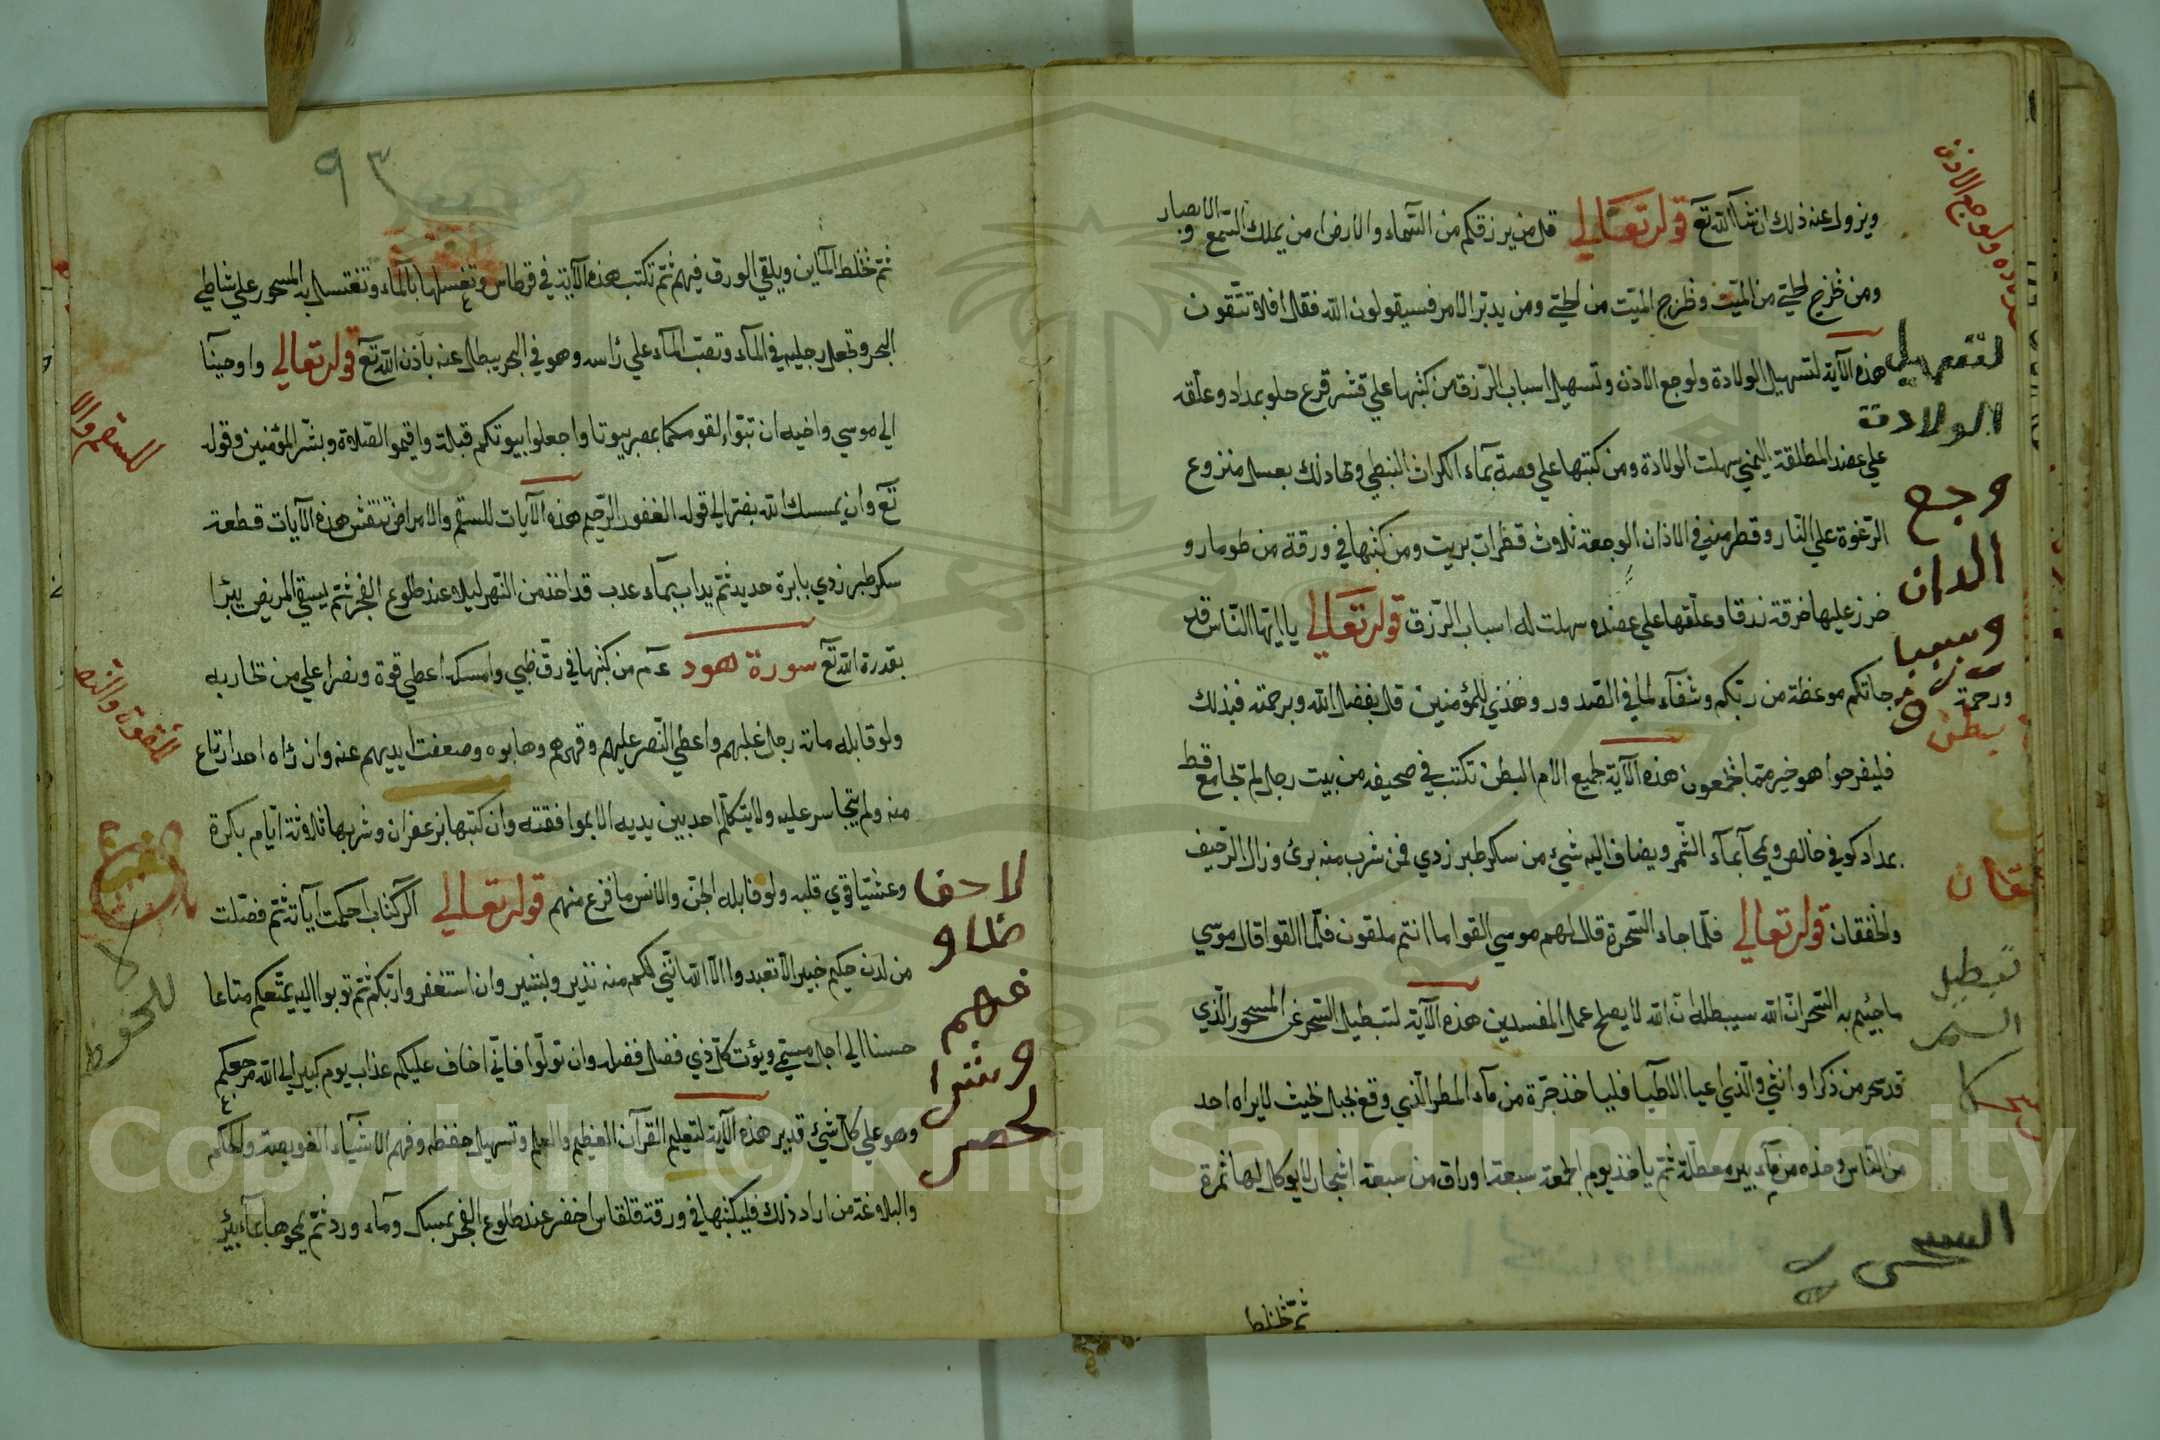 ويزول عنه ذلك ان شاء الله تع قوله تعالي قل من يرزقكم من السماء والارض امن يملك السمع والابصار
ومن يخرج الحي من الميت ويخرج الميت من الحي ومن يدبر الامر فسيقولون الله فقل افلا تتقون
هذه الآية لتسهيل الولادة ولوجع الاذن وتسهيل اسباب الرزق من كتبها علي قشر قرع حلو بمداد وعلقه
علي عضد المطلقة اليمني سهلت الولادة ومن كتبها علي فضة بماء الكراث النبطي ومحا ذلك بعسل منزوع
الرغوة علي النار وقطر منه في الاذان الوجعة ثلاث قطرات بريت ومن كتبها في ورقة من طومار و
خرز عليها خرقة زرقا وعلقها علي عضده سهلت له اسباب الرزق قوله تعالي يا ايها الناس قد
جاتكم موعظة من ربكم وشفآء لما في الصدور وهدي ورحمة للمؤمنين قل بفضل الله وبرحمته فبذلك
فليفرحوا هو خير مما يجمعون هذه الآية لجميع الام البطن تكتب في صحيفه من بيت رجل لم يجامع قط
بمداد كوفي خالص ويمحا بمآء الثمر ويضاف اليه شيء من سكر طبرزدي فمن شرب منه برئ وزال الرجيف
والخفقان قوله تعالي فلما جاء السحرة قال لهم موسي القوا ما انتم ملقون فلما القوا قال موسي
ما جئتم به السحر ان الله سيبطله ان الله لا يصلح عمل المفسدين هذه الآية لتبطيل السحر عن المسحور الذي
قد سحر من ذكر او انثي والذي اعيا الاطبا فلياخذ جرة من مآء المطر الذي وقع بجبال بحيث لا يراه احد
من الناس وخذه من مآء بير معطلة ثم ياخذ يوم الجمعة سبعة اوراق من سبعة اشجار لا يوكل لها ثمرة
ثم تخلط
لتسهيل
الولادة
وجع
الادان
بطن
تبطيل
السحر
٩٣
ثم تخلط المآين ويلقي الورق فيهم ثم تكتب هذه الآية في قرطاس وتغسلها بالمآء وتغتسل به المسحور علي شاطي
البحر وتجعل رجليه في المآء وتصب المآء علي رأسه وهو في البحر يبطل عنه باذن الله تع قوله تعالي واوحينآ
الي موسي واخيه ان تبوء لقومكما بمصر بيوتا واجعلوا بيوتكم قبلة واقيموا الصلاة وبشر المؤمنين وقوله
تع وان يمسسك الله بضر الي قوله الغفور الرحيم هذه الآيات للسقم والامراض تنقش هذه الآيات قطعة
سكر طبرزدي بابرة حديد ثم يداب بمآء عدب قد اخذ من النهر ليلا عند طلوع الفجر ثم يسقي المريض يبرا
بقدرة الله تع سورة هود ع م من كتبها في رق ظبي وامسكه اعطي قوة ونصرا علي من تحاربه
ولو قابله مائة رجل غلبهم واعطي النصر عليهم وقهرهم وهابوه وضعفت ايديهم عنه وان رأه احد ارتاع
منه ولم يتجاسر عليه ولا يتكلم احد بين يديه الا بموافقته وان كتبها بزعفران وشربها ثلاثة ايام باكرة
وعشيا قوي قلبه ولو قابله الجن والانس ما فزع منهم قوله تعالي الر كتاب احكمت آياته ثم فصلت
من لدن حكيم خبير الا تعبدوا الا الله انني لكم منه نذير وبشير وان استغفروا ربكم ثم توبوا اليه يمتعكم متاعا
حسنا الي اجل مسمي ويؤت كل ذي فضل فضله وان تولوا فاني اخاف عليكم عذاب يوم كبير الي الله مرجعكم
وهو علي كل شيء قدير هذه الآية لتعليم القرآن العظيم والعلم وتسهيل حفظه وفهم الاشيآء الغويصة والحكم
والبلاغة من اراد ذلك فليكتبها في ورقة قلقاس اخضر عند طلوع الفجر بمسك ومآء ورد ثم يمحوها بمآء بئر
للسقم والا
للقوة والنصر
للحفظ
Copyright © King Saud University